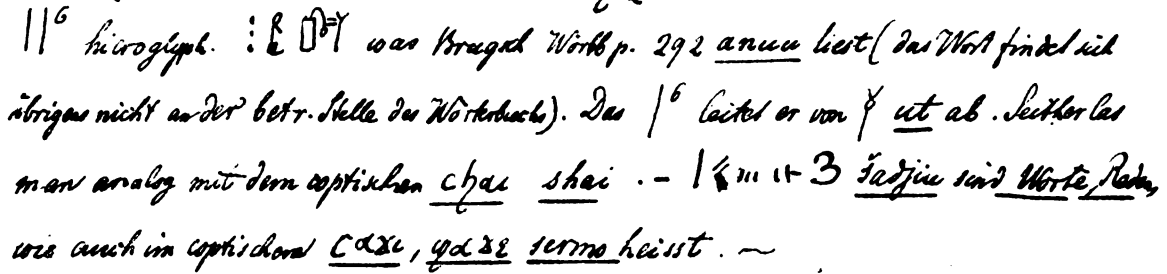 hieroglyph. was Brugsch Wörtb p. 292 anuu liest (das Wort findet sich
übrigens nicht an der betr. Stelle des Wörterbuchs). Das leitet er von ut ab. Seither las
man analog mit dem coptischen cϧаι shai . – 3 šadjiu sind Worte, Reden,
wie auch im coptischen Caϫι, ϣaϫε sermo heisst. ~